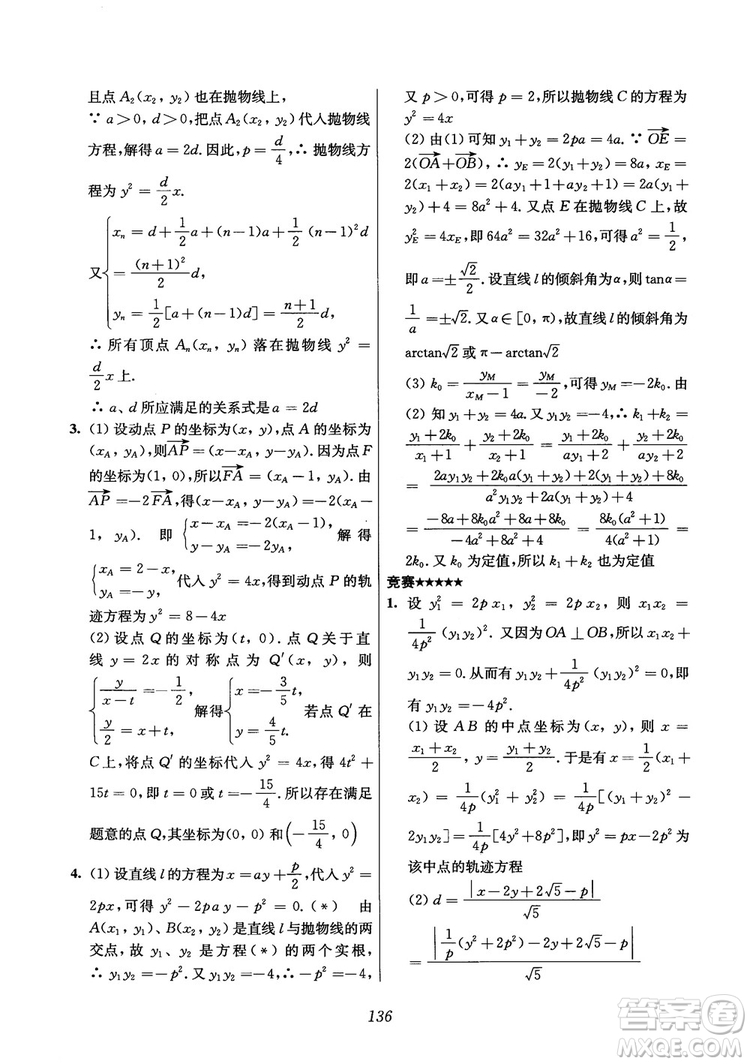 且点 A₂(x₂, y₂) 也在抛物线上,
∵ a>0, d>0,把点 A₂(x₂, y₂) 代入抛物线
方程,解得 a=2d. 因此, p=d/4, ∴ 抛物线方
程为 y²=d/2 x.
又{xₙ=d+1/2 a+(n-1)a+1/2(n-1)²d
=(n+1)²/2 d,
yₙ=1/2[a+(n-1)d]=(n+1)/2 d,
∴ 所有顶点 Aₙ(xₙ, yₙ) 落在抛物线 y²=
d/2 x上.
∴ a、d 所应满足的关系式是 a=2d
3. (1) 设动点 P 的坐标为(x, y),点 A 的坐标为
(x_A, y_A),则AP→=(x-x_A, y-y_A). 因为点 F
的坐标为(1, 0),所以FA→=(x_A-1, y_A). 由
AP→=-2FA→,得(x-x_A, y-y_A)=-2(x_A-
1, y_A). 即 {x-x_A=-2(x_A-1), y-y_A=-2y_A, 解得
{x_A=2-x, y_A=-y, 代入 y²=4x,得到动点 P 的轨
迹方程为 y²=8-4x
(2) 设点 Q 的坐标为(t, 0). 点 Q 关于直
线 y=2x 的对称点为 Q′(x, y), 则
{y/(x-t)=-1/2, y/2=x+t, 解得{x=-3/5 t, y=4/5 t. 若点 Q′ 在
C上,将点 Q′ 的坐标代入 y²=4x, 得 4t²+
15t=0,即 t=0 或 t=-15/4. 所以存在满足
题意的点 Q,其坐标为(0, 0) 和(-15/4, 0)
4. (1) 设直线 l 的方程为 x=ay+p/2,代入 y²=
2px,可得 y²-2pay-p²=0. (*) 由
A(x₁, y₁)、B(x₂, y₂) 是直线 l 与抛物线的两
交点,故 y₁、y₂ 是方程(*)的两个实根,
∴ y₁y₂=-p². 又 y₁y₂=-4, ∴ -p²=-4,
又 p>0,可得 p=2,所以抛物线 C 的方程为
y²=4x
(2) 由(1)可知 y₁+y₂=2pa=4a. ∵ OE→=
2(OA→+OB→) ∴ y_E=2(y₁+y₂)=8a, x_E=
2(x₁+x₂)=2(ay₁+1+ay₂+1)=2a(y₁+
y₂)+4=8a²+4. 又点 E 在抛物线 C 上,故
y_E²=4x_E,即 64a²=32a²+16,可得 a²=1/2,
即 a=±√2/2. 设直线 l 的倾斜角为α,则 tanα=
1/a=±√2. 又 α∈[0, π),故直线 l 的倾斜角为
arctan√2 或 π-arctan√2
(3) k₀=y_M/(x_M-1)=y_M/-2, ∴ y_M=-2k₀. 由
(2) 知 y₁+y₂=4a. 又 y₁y₂=-4, ∴ k₁+k₂=
(y₁+2k₀)/(x₁+1)+(y₂+2k₀)/(x₂+1)=(y₁+2k₀)/(ay₁+2)+(y₂+2k₀)/(ay₂+2)=
[2ay₁y₂+2k₀a(y₁+y₂)+2(y₁+y₂)+8k₀]/[a²y₁y₂+2a(y₁+y₂)+4]=
(-8a+8k₀a²+8a+8k₀)/(-4a²+8a²+4)=8k₀(a²+1)/4(a²+1)=
2k₀. 又 k₀ 为定值,所以 k₁+k₂ 也为定值
竞赛★★★★★
1. 设 y₁²=2px₁, y₂²=2px₂, 则 x₁x₂=
1/4p²(y₁y₂)². 又因为OA⊥OB,所以 x₁x₂+
y₁y₂=0. 从而有 y₁y₂+1/4p²(y₁y₂)²=0,所
以 y₁y₂=-4p².
(1) 设 AB 的中点坐标为(x, y), 则 x=
(x₁+x₂)/2, y=(y₁+y₂)/2. 于是有 x=1/2(x₁+
x₂)=1/4p(y₁²+y₂²)=1/4p[(y₁+y₂)²-
2y₁y₂]=1/4p[4y²+8p²],即 y²=px-2p²为
该中点的轨迹方程
(2) d=|x-2y+2√5-p|/√5
=|1/p(y²+2p²)-2y+2√5-p|/√5
136
答案圈
MXQE.COM